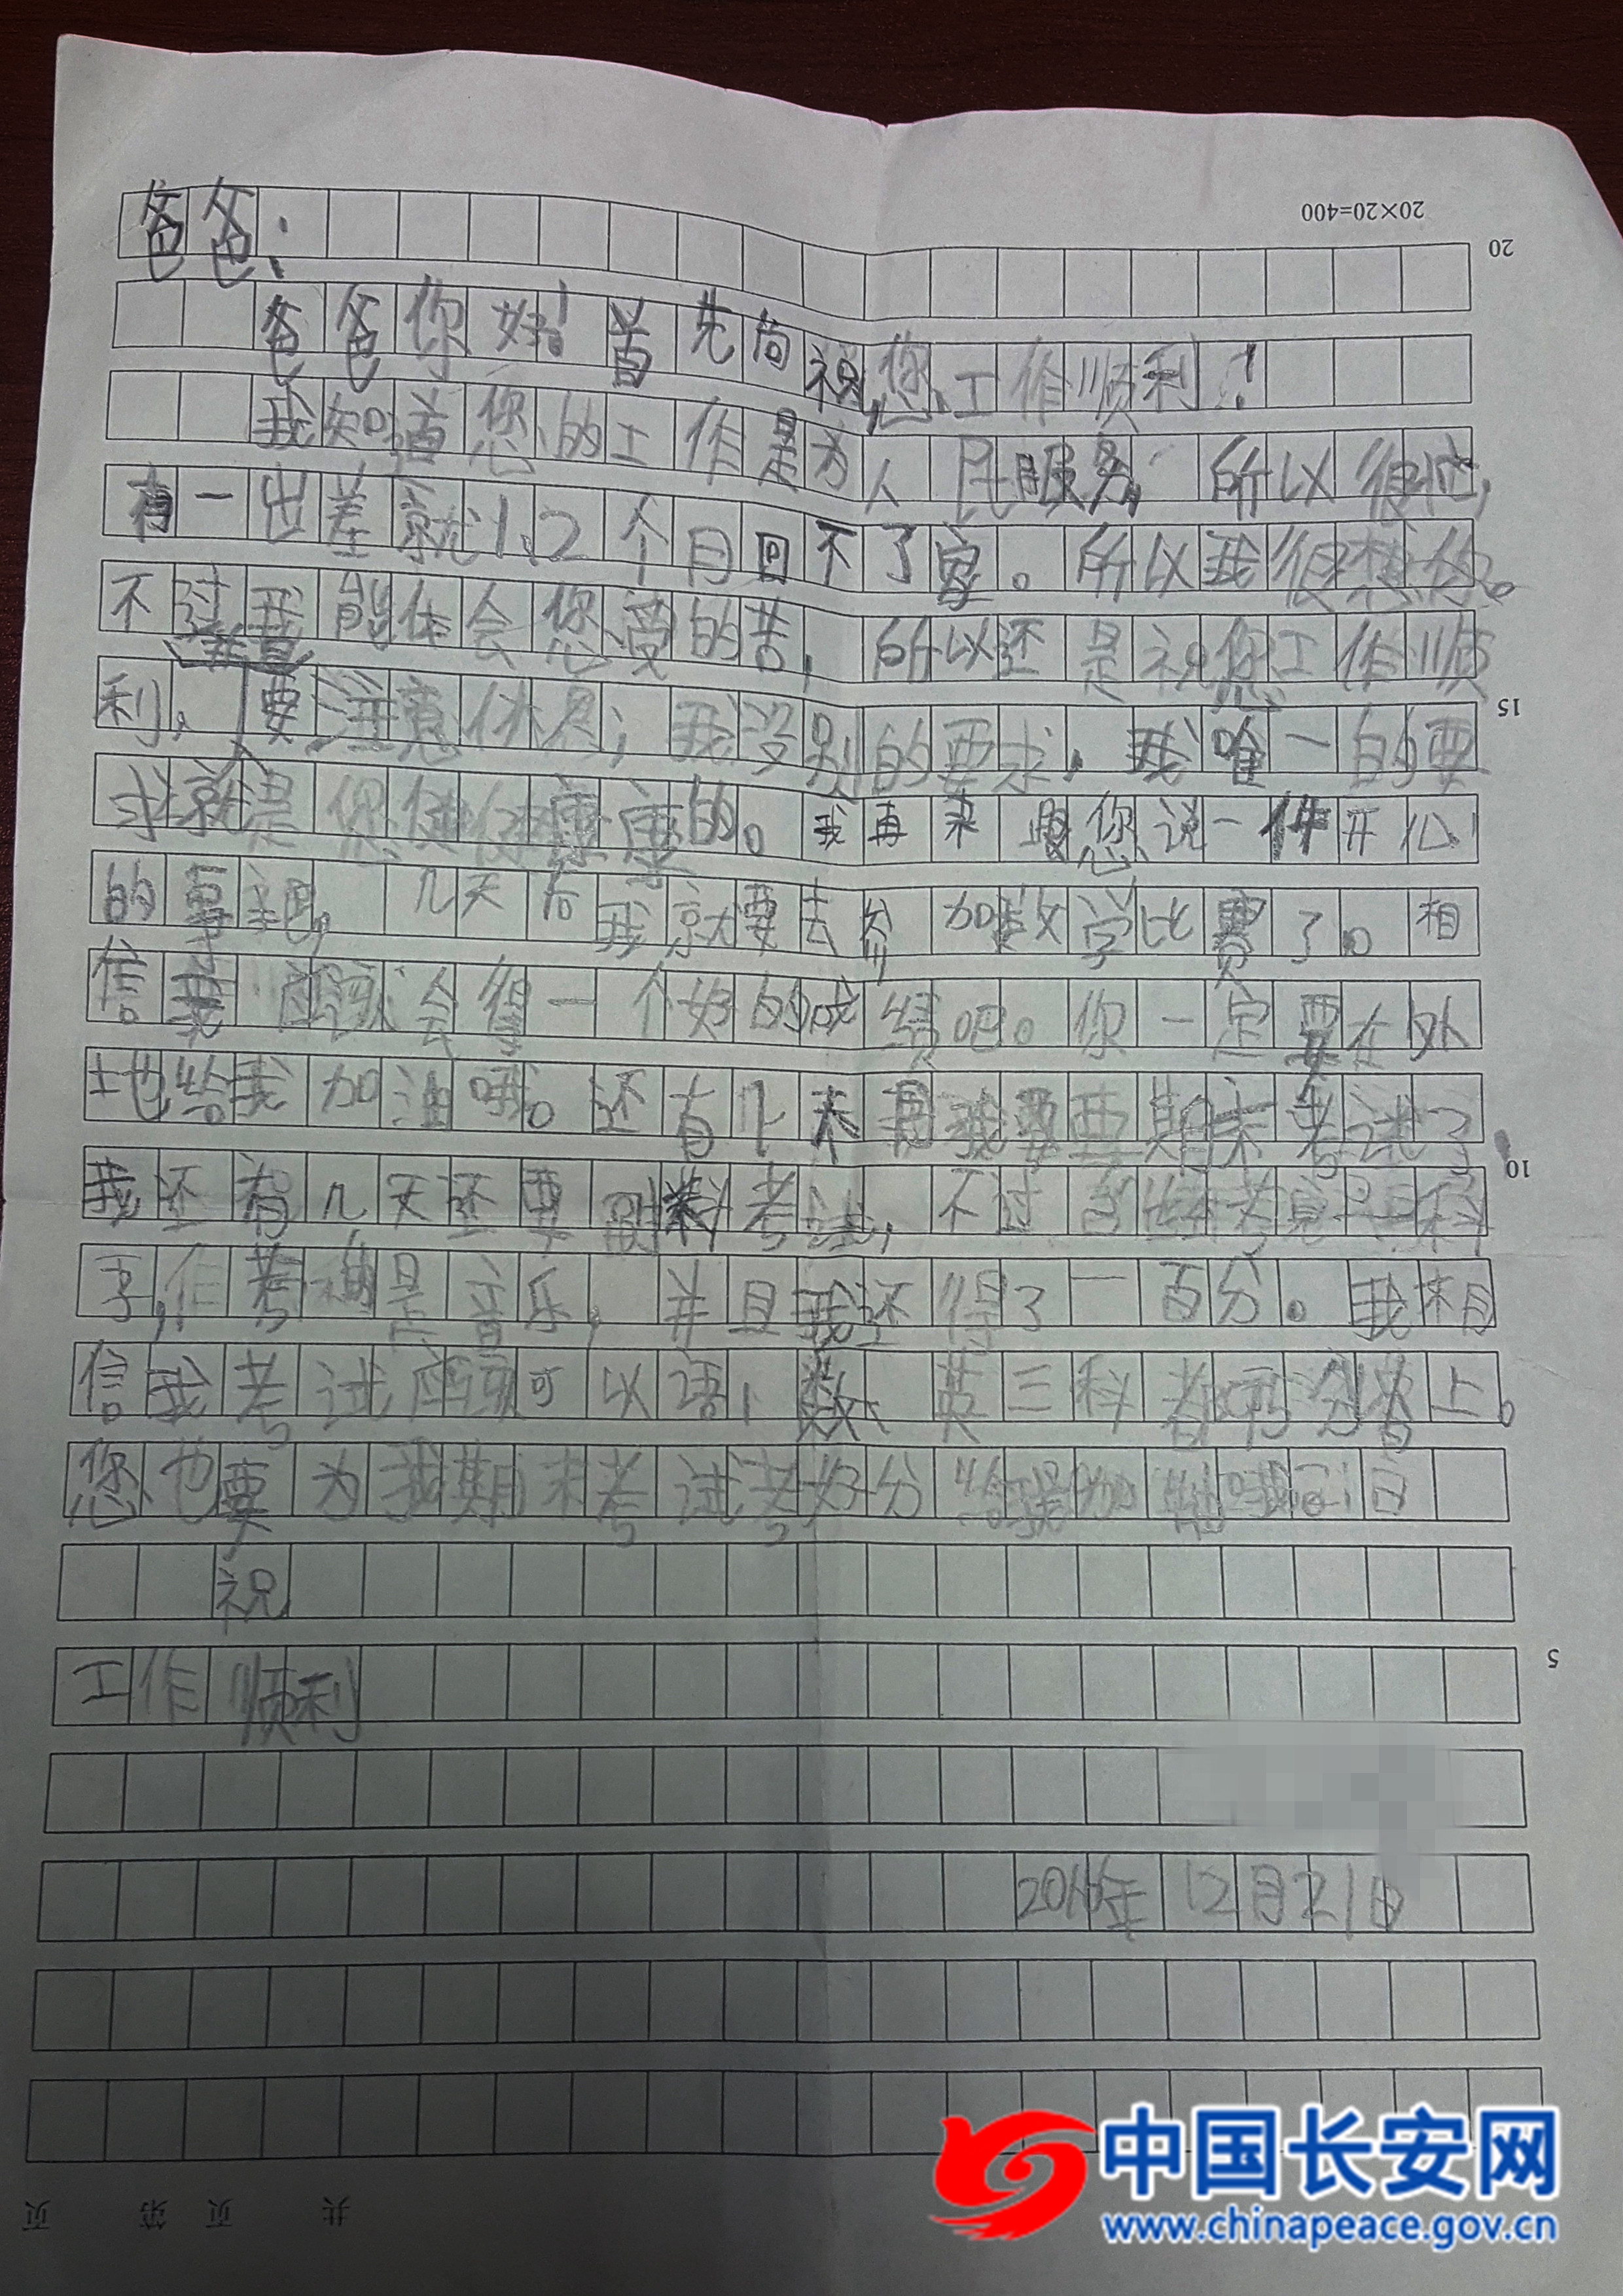 20×20=400
20
爸爸:
爸爸你好!首先向祝您工作顺利!
我知道您的工作是为人民服务,所以很忙,
有一出差就1、2个月回不了家。所以我很想你。
不过我能体会您受的苦,所以还是祝您工作顺
15
利,要注意休息,我没别的要求,我唯一的要
求就是您健健康康的。我再来跟您说一件开心
的事吧,几天后我就要去参加数学比赛了。相
信我应该会得一个好的成绩吧。你一定要在外
地给我加油哦。还有几天我要期末考试了
10
我还有几天还要考试,不过
我还得了一百分。我相
信我考试应该可以语、数、英三科都
上。
您也要为我期末考试考好分
祝
5
工作顺利
2016年12月21日
共 页 第 页
中国长安网
www.chinapeace.gov.cn